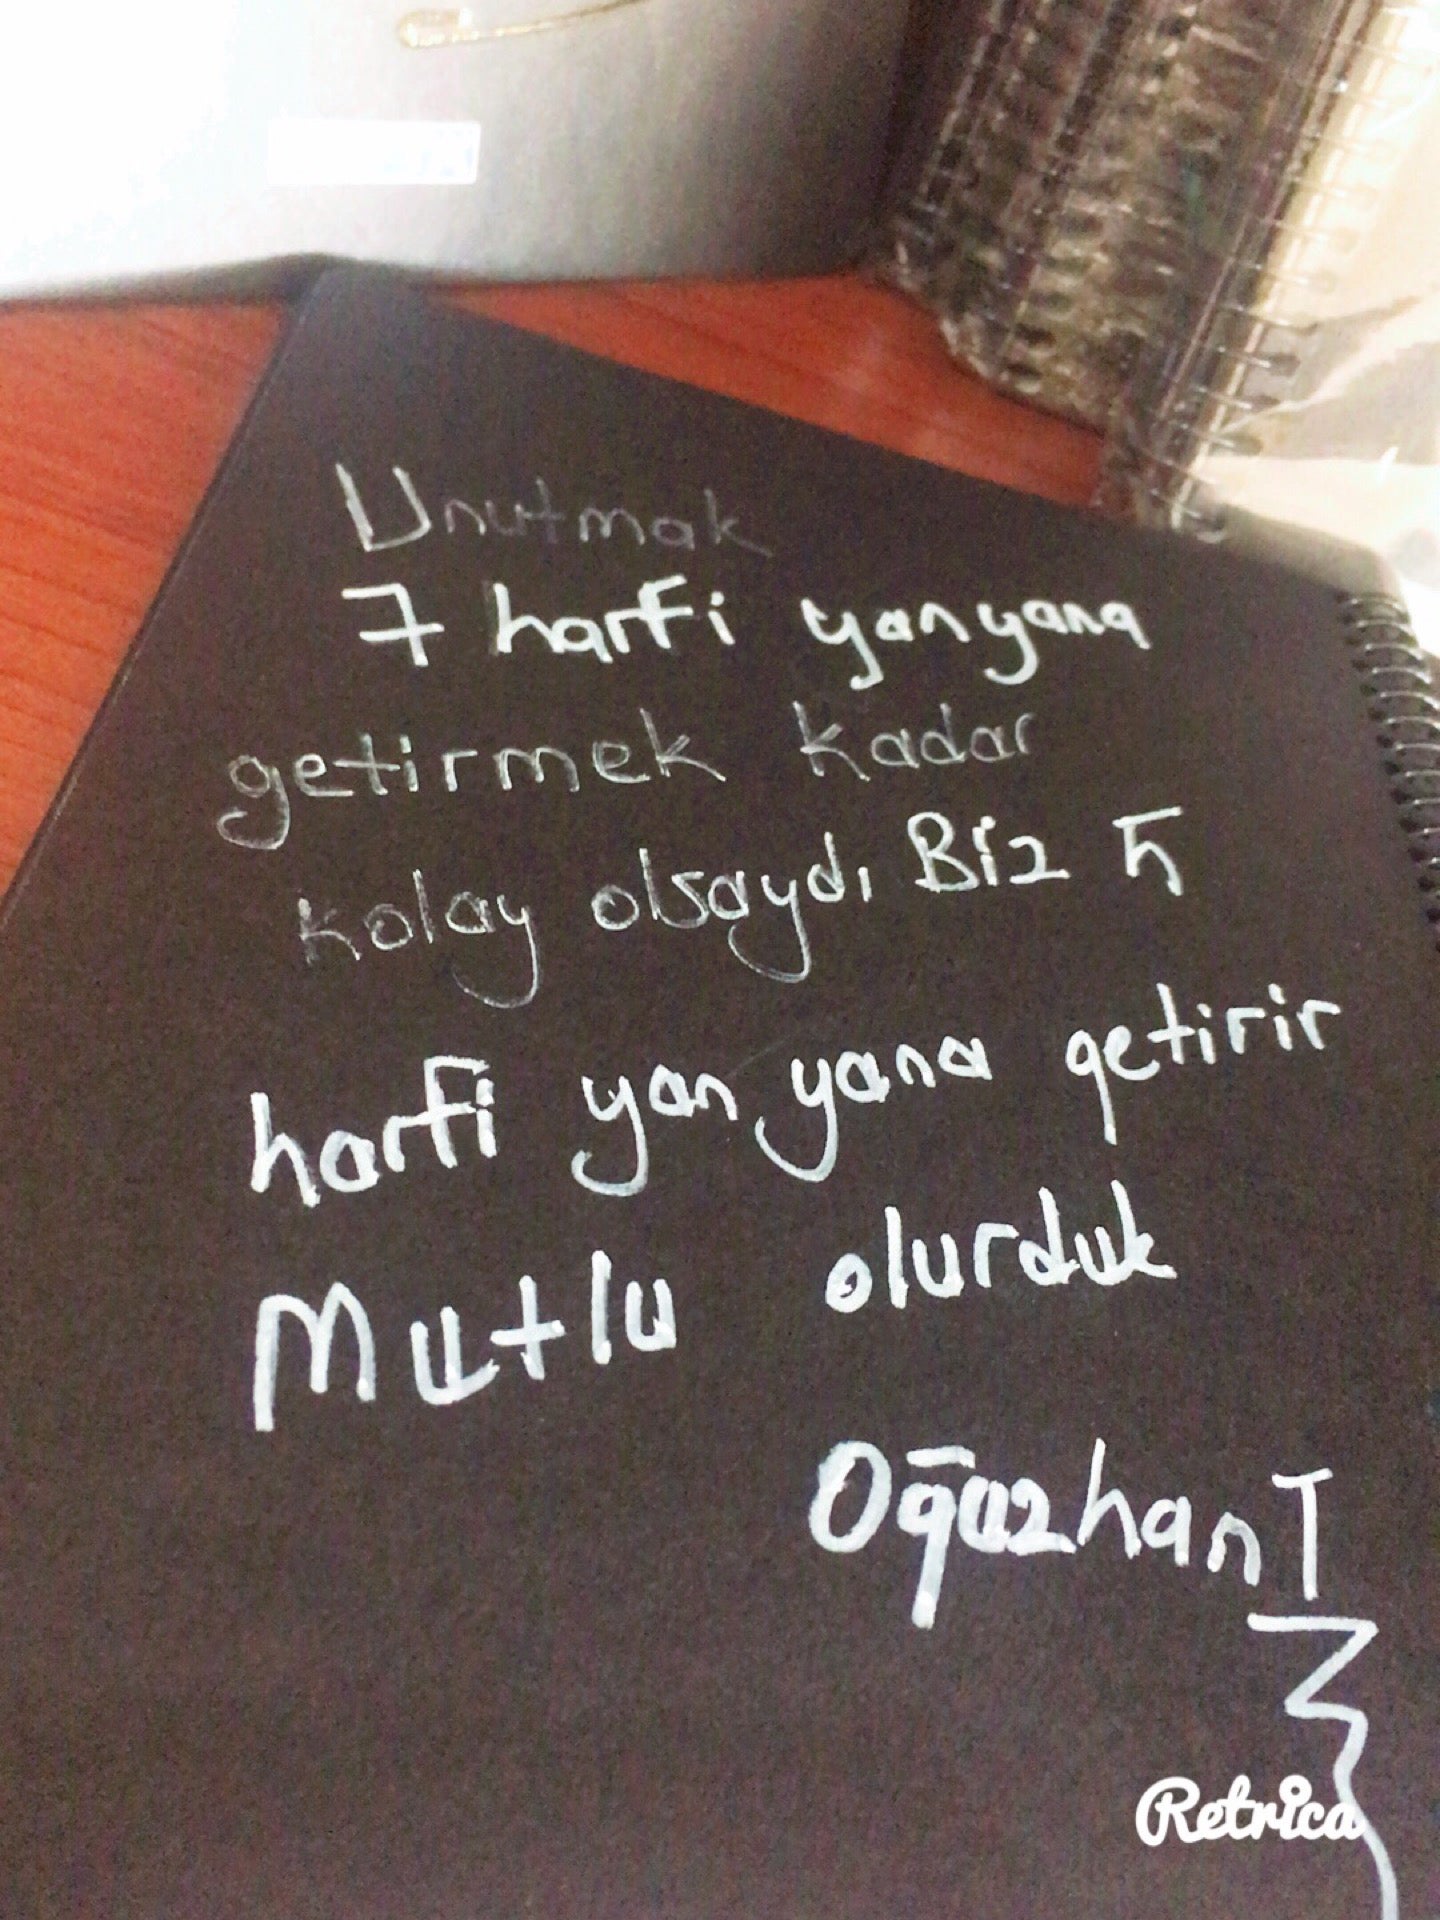 Unutmak
7 harfi yanyana
getirmek kadar
kolay olsaydı Biz 5
harfi yan yana getirir
Mutlu olurduk
Oğuzhan T
Retrica